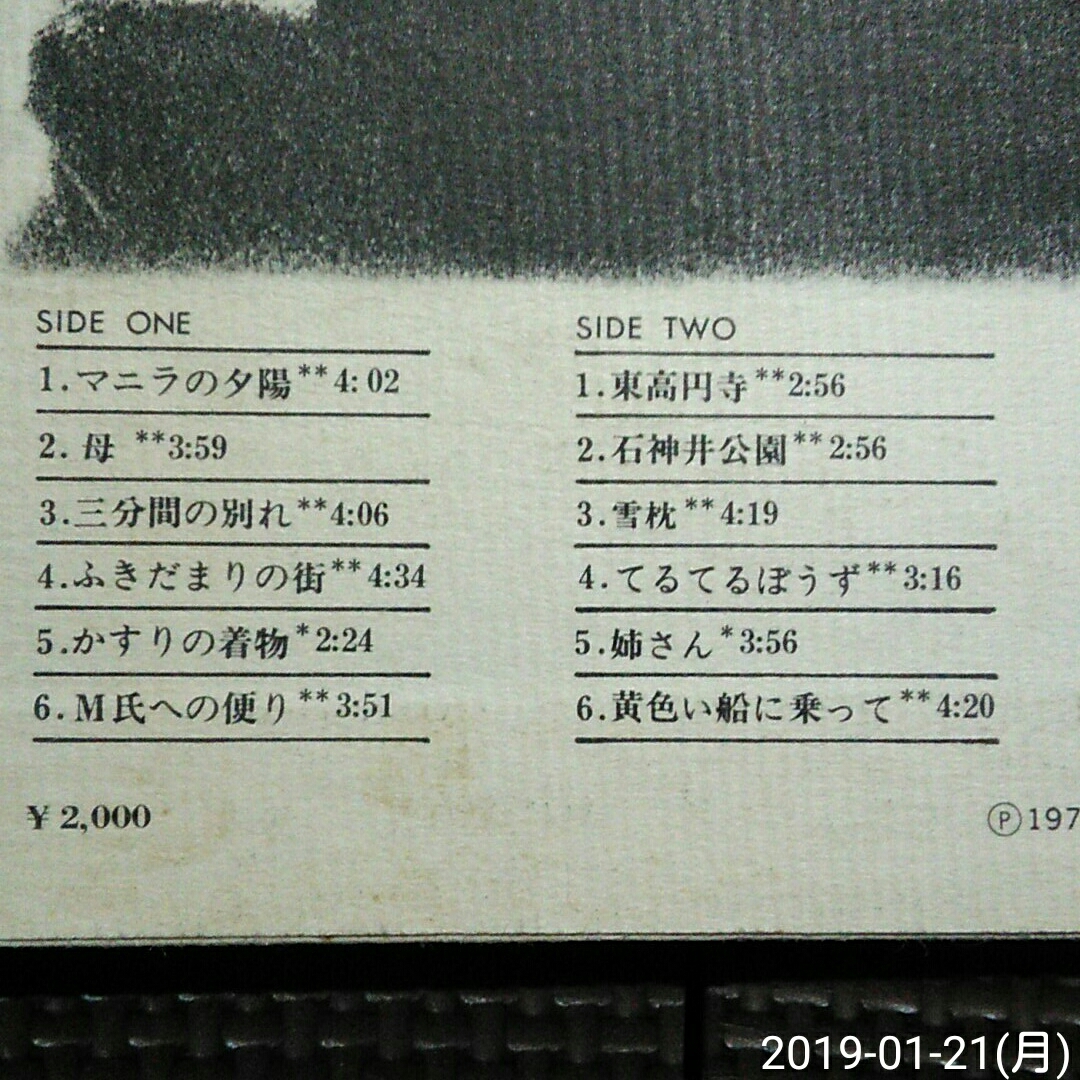 SIDE ONE
1.マニラの夕陽**4:02
2.母 **3:59
3.三分間の別れ**4:06
4.ふきだまりの街**4:34
5.かすりの着物*2:24
6.M氏への便り**3:51
SIDE TWO
1.東高円寺**2:56
2.石神井公園**2:56
3.雪枕**4:19
4.てるてるぼうず**3:16
5.姉さん*3:56
6.黄色い船に乗って**4:20
¥2,000
Ⓟ197
2019-01-21(月)